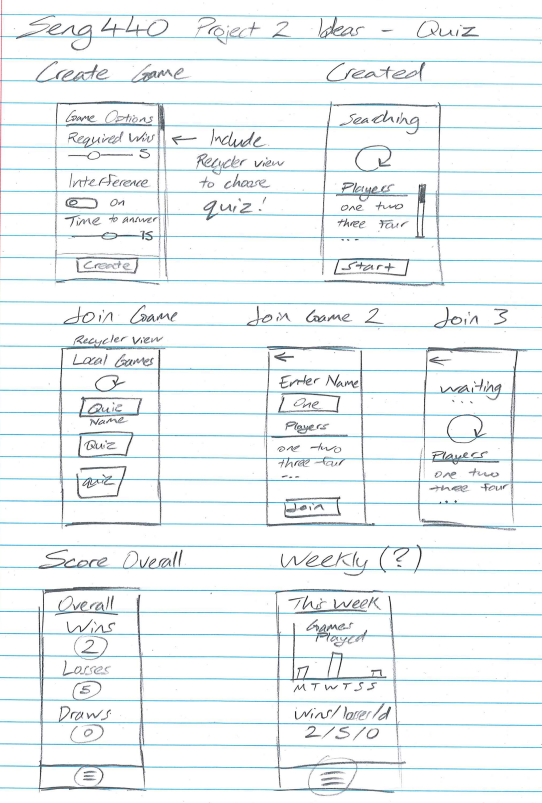 Seng440 Project 2 Ideas - Quiz
Create Game
Game Options
Required Wins
5
Interference
on
Time to answer
15
Create
← Include
Recycler view
to choose
quiz!
Created
Searching
Players
one two
three four
...
Start
Join Game
Recycler view
Local Games
Quiz
Name
Quiz
quiz
Join Game 2
←
Enter Name
One
Players
one two
three four
...
Join
Join 3
←
waiting
...
Players
one two
three four
...
Score Overall
Overall
Wins
2
Losses
5
Draws
0
Weekly (?)
This Week
Games
Played
M T W T S S
Wins/loses/d
2/5/0